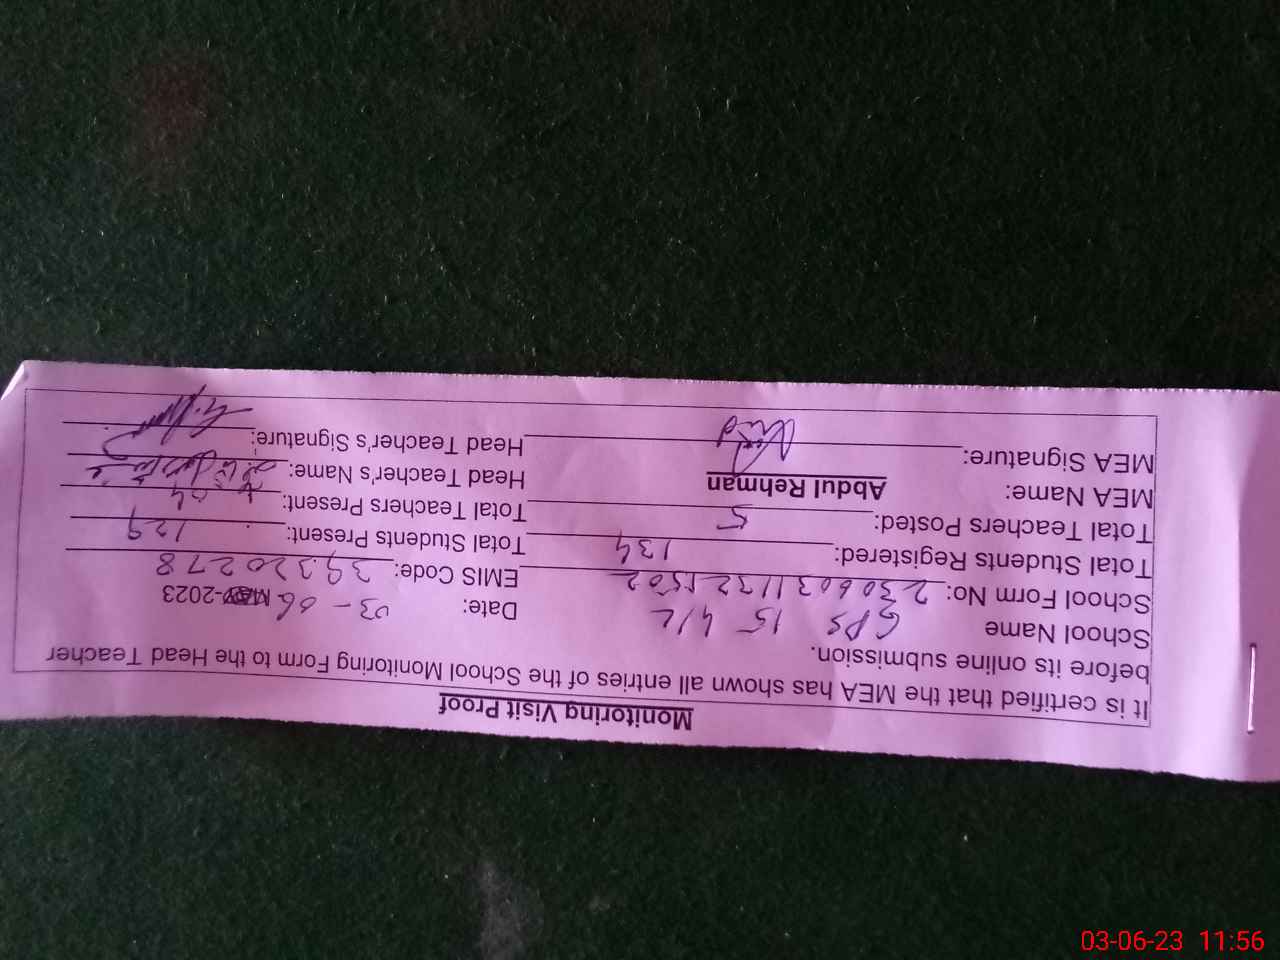 Monitoring Visit Proof
It is certified that the MEA has shown all entries of the School Monitoring Form to the Head Teacher
before its online submission.
School Name GPS 15 4/L Date: 03-06 MAY-2023
School Form No: 230603113221502 EMIS Code: 39320278
Total Students Registered: 134 Total Students Present: 129
Total Teachers Posted: 5 Total Teachers Present: 04
MEA Name: Abdul Rehman Head Teacher's Name:
MEA Signature: Head Teacher's Signature:
03-06-23 11:56